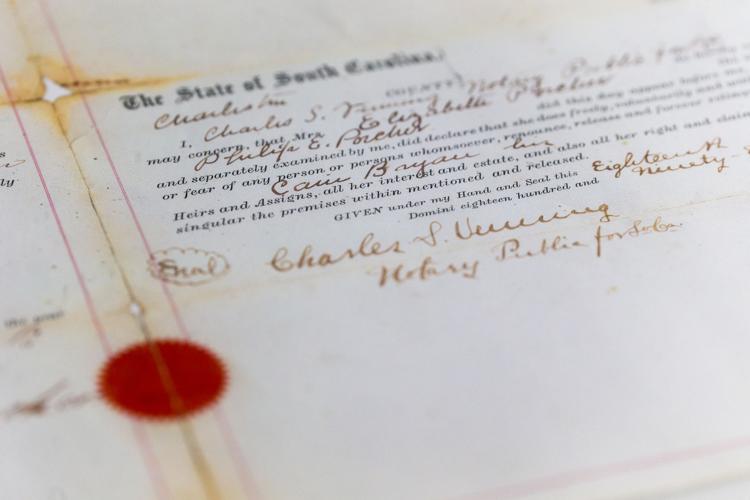 The State of South Carolina,
Charleston COUNTY
I, Charles S. Venning Notary Public for So
may concern, that Mrs. Elizabeth Porcher
Philip E. Porcher did this day appear before me
and separately examined by me, did declare that she does freely, voluntarily and
or fear of any person or persons whomsoever, renounce, release and forever
Cain Bryan his
Heirs and Assigns, all her interest and estate, and also all her right and claim
singular the premises within mentioned and released.
GIVEN under my Hand and Seal this Eighteenth
Domini eighteen hundred and Ninety-
Seal Charles S. Venning
Notary Public for So Ca.